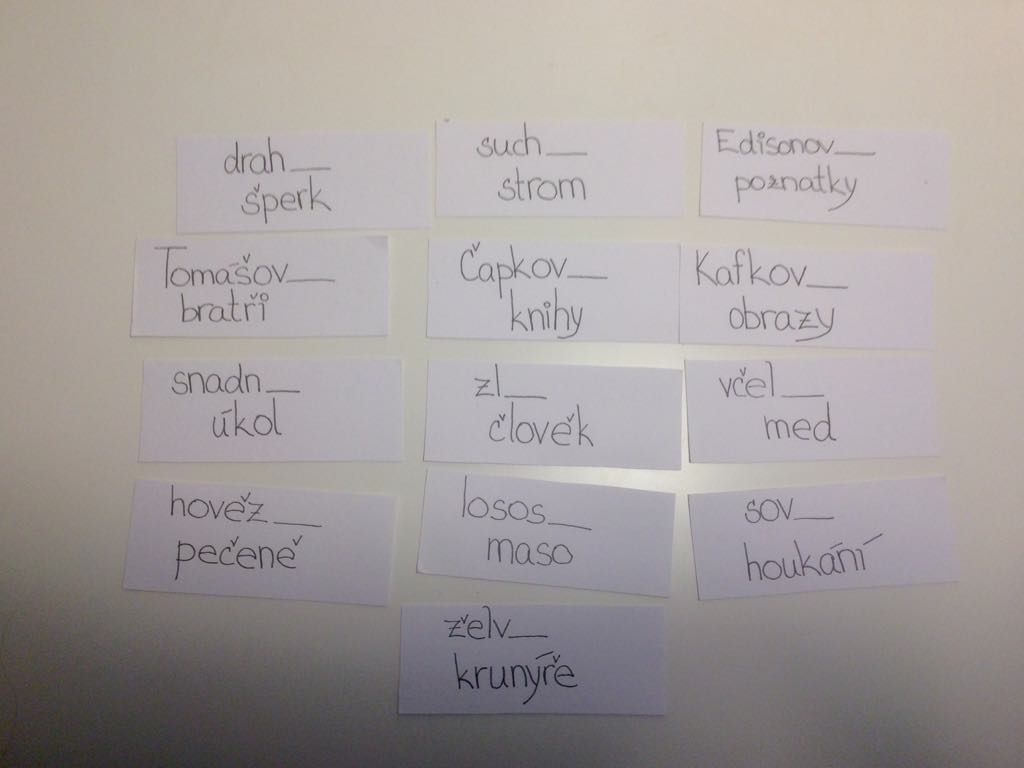 drah__
šperk
such__
strom
Edisonov__
poznatky
Tomášov__
bratři
Čapkov__
knihy
Kafkov__
obrazy
snadn__
úkol
zl__
člověk
včel__
med
hověz__
pečeně
losos__
maso
sov__
houkání
želv__
krunýře